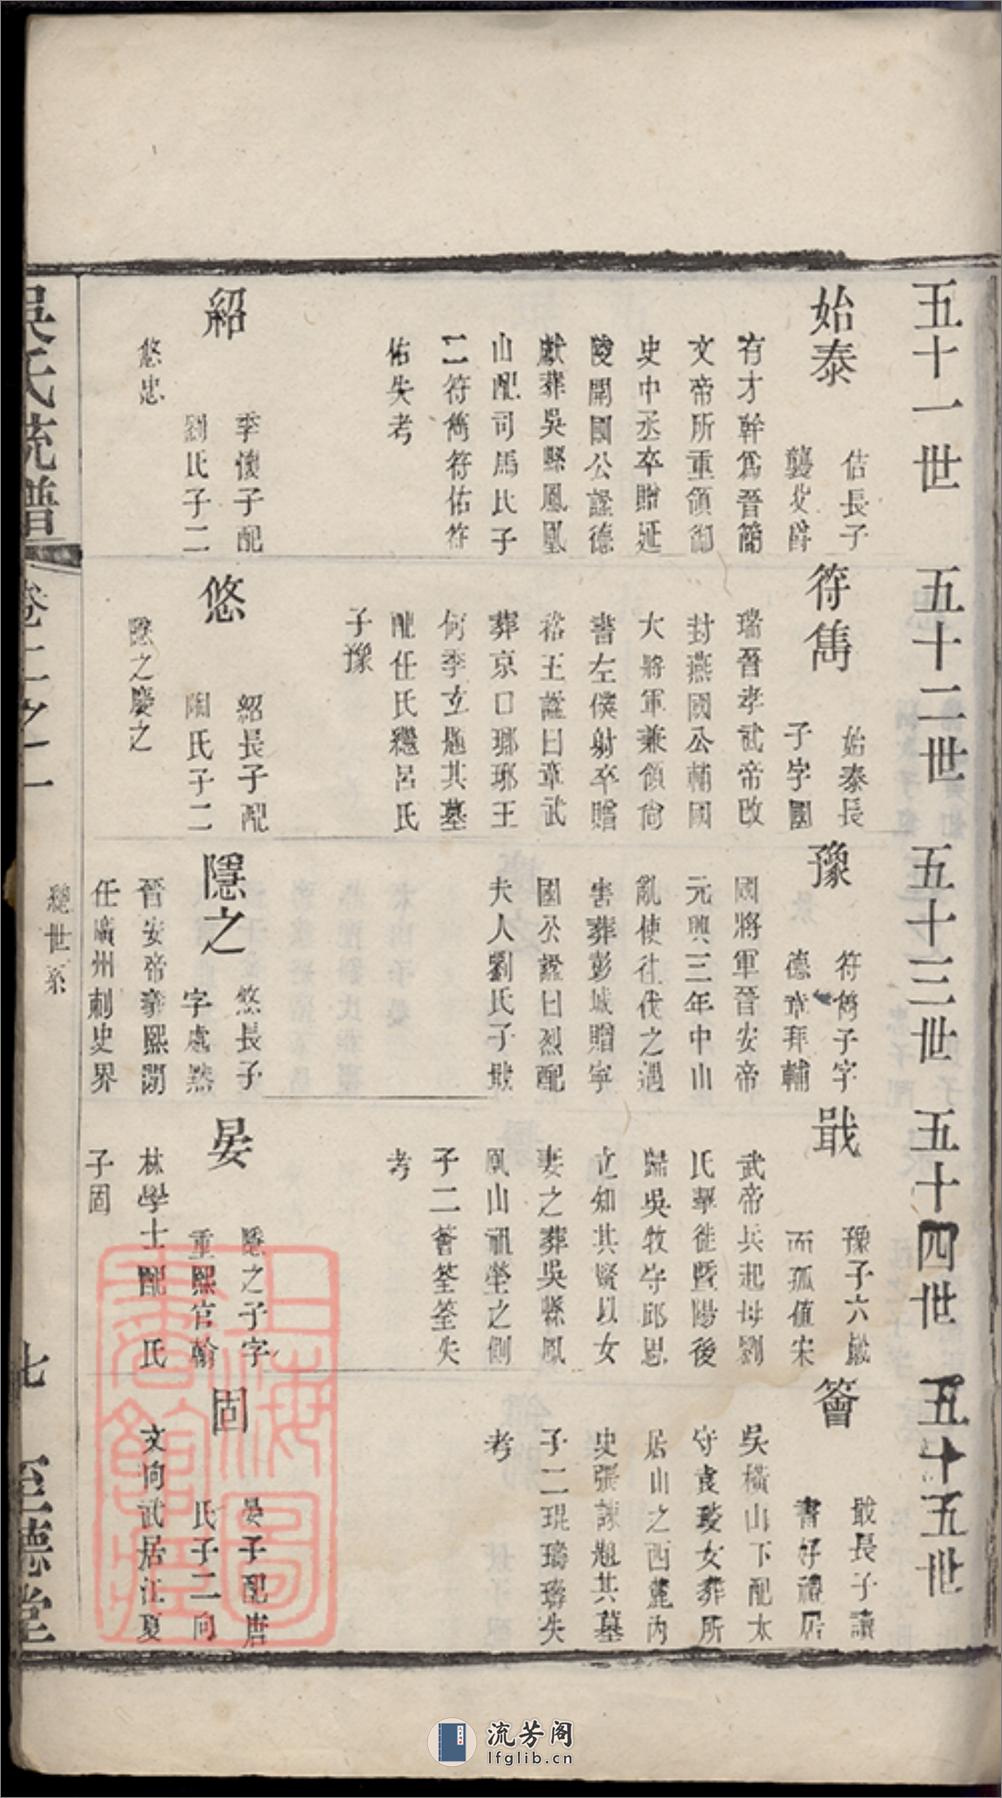 五十一世
始泰
佶長子
襲父爵
有才幹爲晉簡
文帝所重領御
史中丞卒贈延
陵開國公諡德
獻葬吳縣鳳凰
山配司馬氏子
二符雋符佑符
佑失考
紹
季懷子配
劉氏子二
悠忠
五十二世
符雋
始泰長
子字國
瑞晉孝武帝改
封燕國公輔國
大將軍兼領尙
書左僕射卒贈
裕王諡曰章武
葬京口瑯琊王
何季立題其墓
配任氏繼呂氏
子豫
悠
紹長子配
陶氏子二
隱之慶之
五十三世
豫
符雋子字
德章拜輔
國將軍晉安帝
元興三年中山
亂使往伐之遇
害葬彭城贈寧
國公諡曰烈配
夫人劉氏子戢
隱之
悠長子
字處黙
晉安帝義熙間
任廣州刺史界
五十四世
戢
豫子六歲
而孤值宋
武帝兵起母劉
氏挈徙暨陽後
歸吳牧守邱思
立知其賢以女
妻之葬吳縣鳳
凰山祖塋之側
子二䈕筌筌失
考
晏
隱之子字
重熙官翰
林學士配 氏
子固
五十五世
䈕
戢長子讀
書好禮居
吳橫山下配太
守袁琰女葬所
居山之西麓內
史張諫題其墓
子二琨璘璘失
考
固
晏子配唐
氏子二向
文向武居江夏
吳氏統譜
卷二之一
總世系
七
至德堂
上海圖書館藏
流芳阁
lfglib.cn